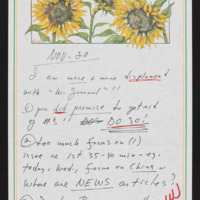 Nov. 30
I am more & more displeased
with "W. Journal"!!
① you did promise to get rid
of #s!! DO SO!
② too much focus on (1)
issue re 1st 35-40 min - eg.
today, Wed, focus on China.
Where are NEWS articles?
③